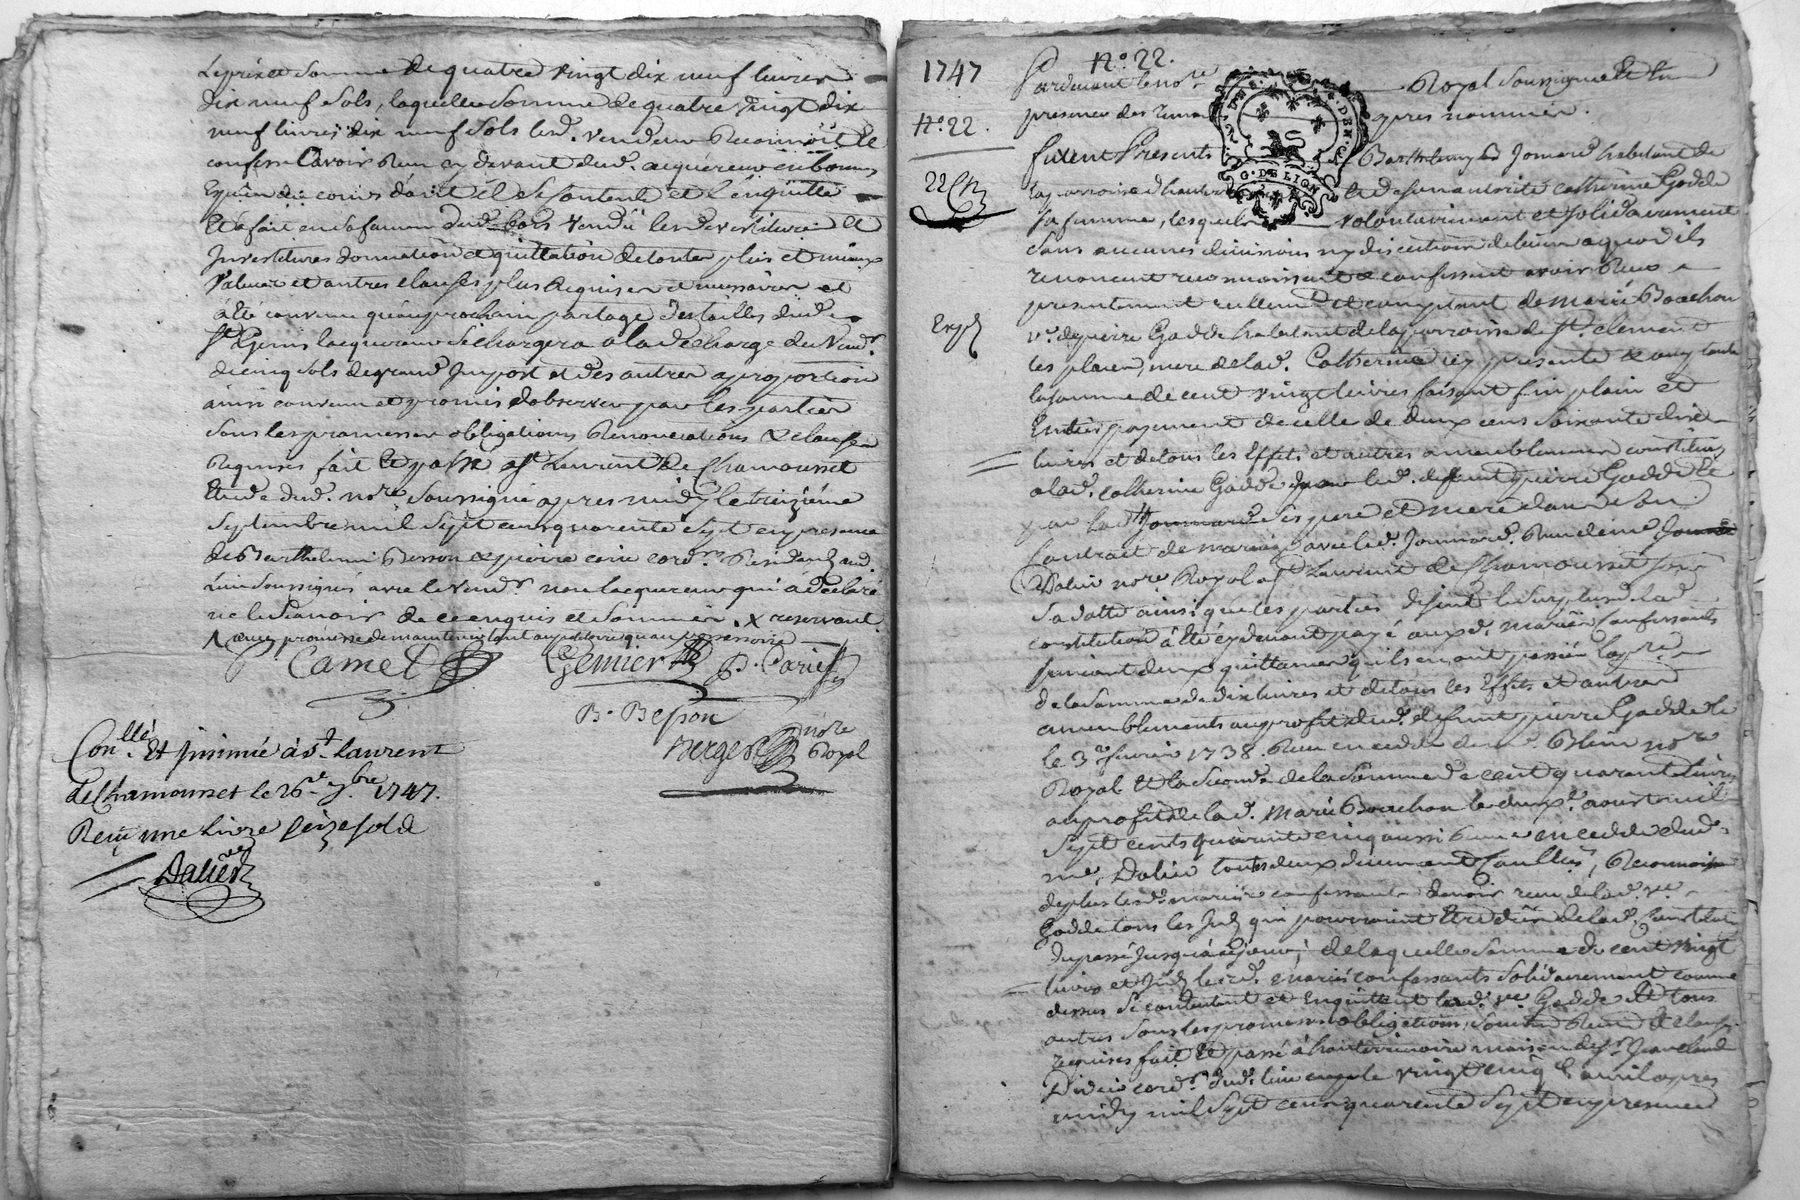 Leprix et somme de quatre vingt dix neuf livres
dix neuf sols, laquelle somme de quatre vingt dix
neuf livres dix neuf sols led. vendeur Reconnoit et
confesse l'avoir Reçu cy devant dud. acquereur en bonnes
Especes de cours dont il se contente et l'enquitte
Et a fait en sa faveur dud. bois vendu les devestitures et
Investitures donnation et quittation de toutes plus et mieux
Value et autres clauses plus Requises et necessaires et
a eté convenu qu'au prochain partage des tailles dud.
St Genis lacquereur se chargera a la decharge du Vend.r
de cinq sols de grand Impost et des autres a proportion
ainsi convenu et promis d'observer par les parties
sous les promesses obligations Renonciations & clauses
Requises fait et passé a St Laurent de Chamousset
Etude dud. no.re soussigné apres midy le treizième
Septembre mil sept cens quarente sept en presence
de Barthelemi Besson & pierre cord.rs Residents aud.
lieu soussignés avec le vend.r non lacquereur qui a declaré
ne le scavoir de ce enquis et sommé. x reservant
Camet Gemier P.
B. Besson
Berger no.re Royal
Con.llé Et Insinué à St. laurent
de Chamousset le 26.e 7.bre 1747.
Reçu une Livre seize sold
Dalier
1747
No. 22.
22
Exp.
No. 22.
Pardevant le no.re Royal soussigné Et en
presence des temoins apres nommés.
furent Presents Barthelemy Jomard habitant de
la parroisse d'hauterivoire Et de son autorité Catherine Gadde
sa femme, lesquels volontairement et solidairement
sans aucunes divisions ny discution de biens a quoy ils
renoncent reconnoissent & confessent avoir Reçu
presentement reellement et comptant de Marie Bouchon
v.e de pierre Gadde habitant de la parroisse de St clement
les places, mere de lad. Catherine icy presente &
la somme de cent vingt livres faisant fin plain et
Entier payement de celle de deux cens soixante dix
livres et de tous les Effets et autres ameublemens constitués
a lad. catherine Gadde par led. deffunt pierre Gadde Et
par lad. ses pere et mere dans son
Contrait de mariage avec led. Jommard. Reçu de me
Dalier no.re Royal a St Laurent de Chamousset sous
sa datte ainsi que les parties disent le surplus de lad.
constitution a été cy devant payé auxd. mariés confessants
suivant deux quittances qu'ils en ont passées la p.re
de la somme de dix livres et de tous les Effets et autres
ameublements au profit dud. deffunt pierre Gadde le
le 3.e fevrier 1738. Reçu no.re
Royal Et la seconde de la somme de cent quarante livres
au profit de lad. Marie Bouchon le deux.e aoust mil
sept cents quarente cinq aussi Reçu dud.
me. Dalier toutes deux duement Conllées, Reconnoiss.t
de plus lesd. mariés confessants devoir rien de lad. ve.
Gadde tous les qui pourroient Etre dûs de lad. constitution
du passé Jusqu'à ce jour, de laquelle somme de cent vingt
livres et lesd. mariés confessants solidairement comme
dessus se contentent et Enquittent lad. ve. Gadde Et tous
autres sous les promesses obligations, Et clauses
requises fait Et passé à hauterivoire maison de sr Jean claude
cord.r dud. lieu vingt cinq avril apres
midy mil sept cens quarente sept en presence